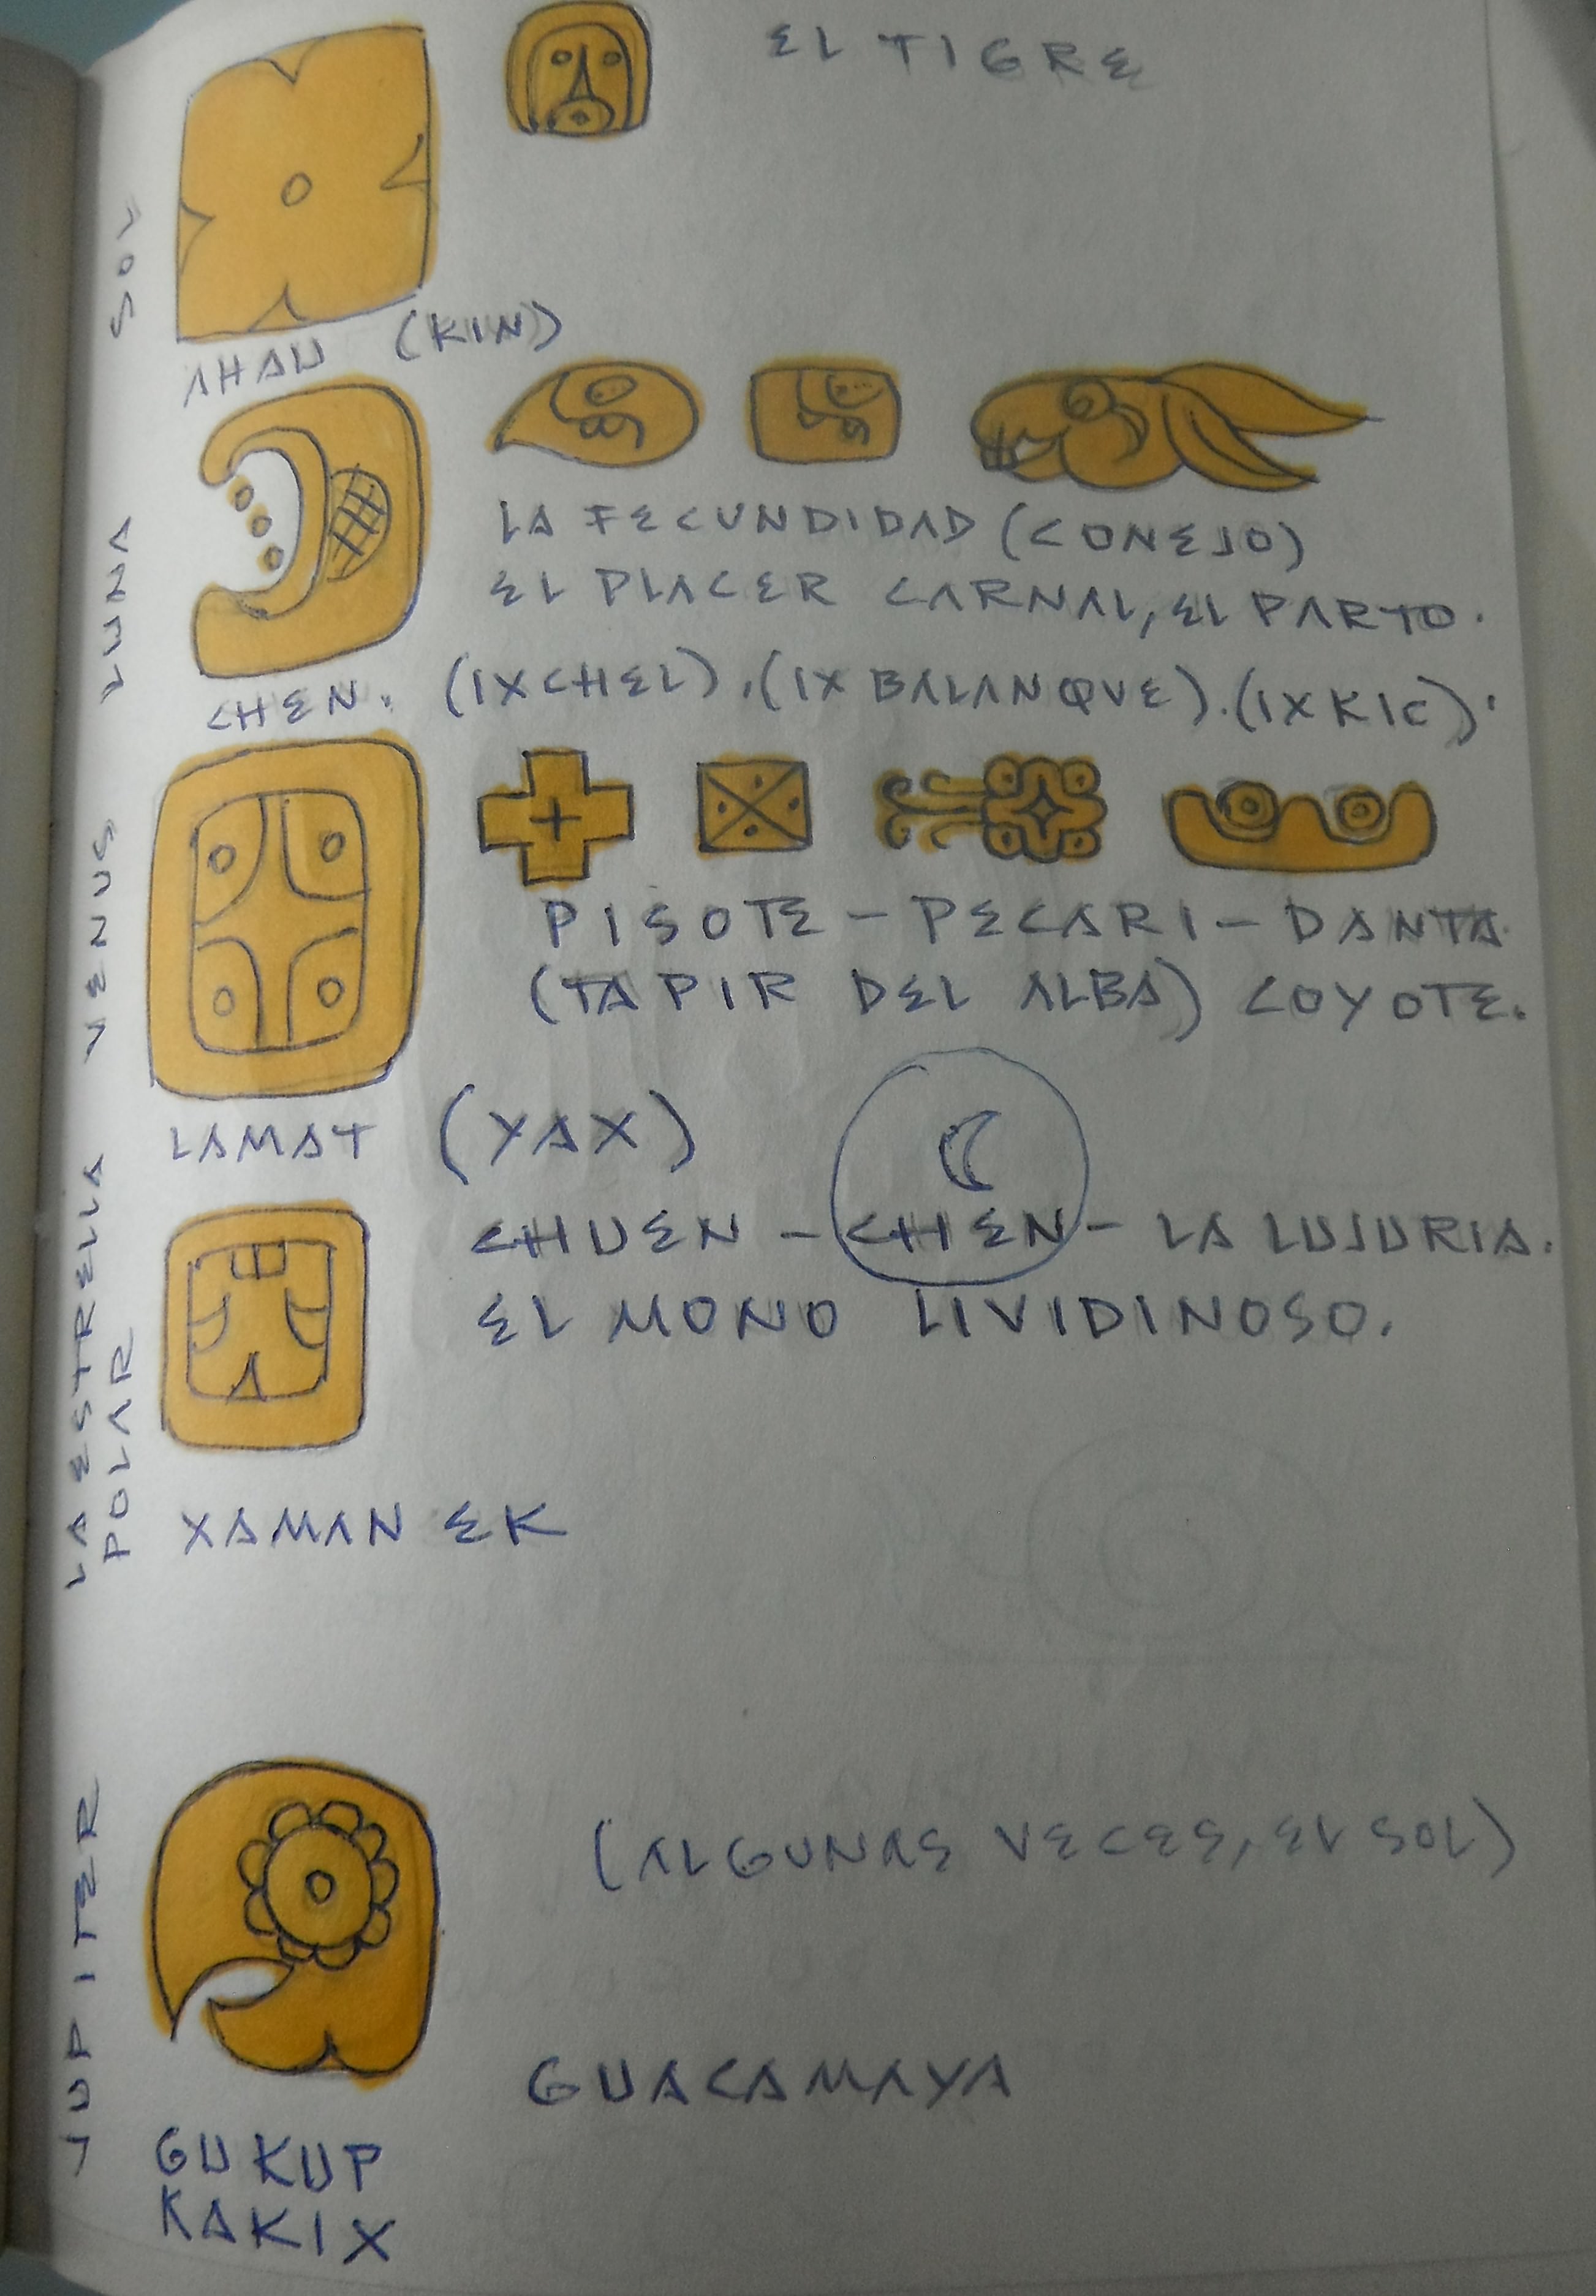 EL TIGRE
SOL
AHAU (KIN)
LUNA
LA FECUNDIDAD (CONEJO)
EL PLACER CARNAL, EL PARTO.
CHEN. (IXCHEL). (IX BALANQUE). (IXKIC).
VENUS
PISOTE - PECARI - DANTA
(TAPIR DEL ALBA) COYOTE.
LAMAT (YAX)
LA ESTRELLA
POLAR
CHUEN - CHEN - LA LUJURIA.
EL MONO LIVIDINOSO.
XAMAN EK
JUPITER
(ALGUNAS VECES, EL SOL)
GUACAMAYA
GUKUP
KAKIX